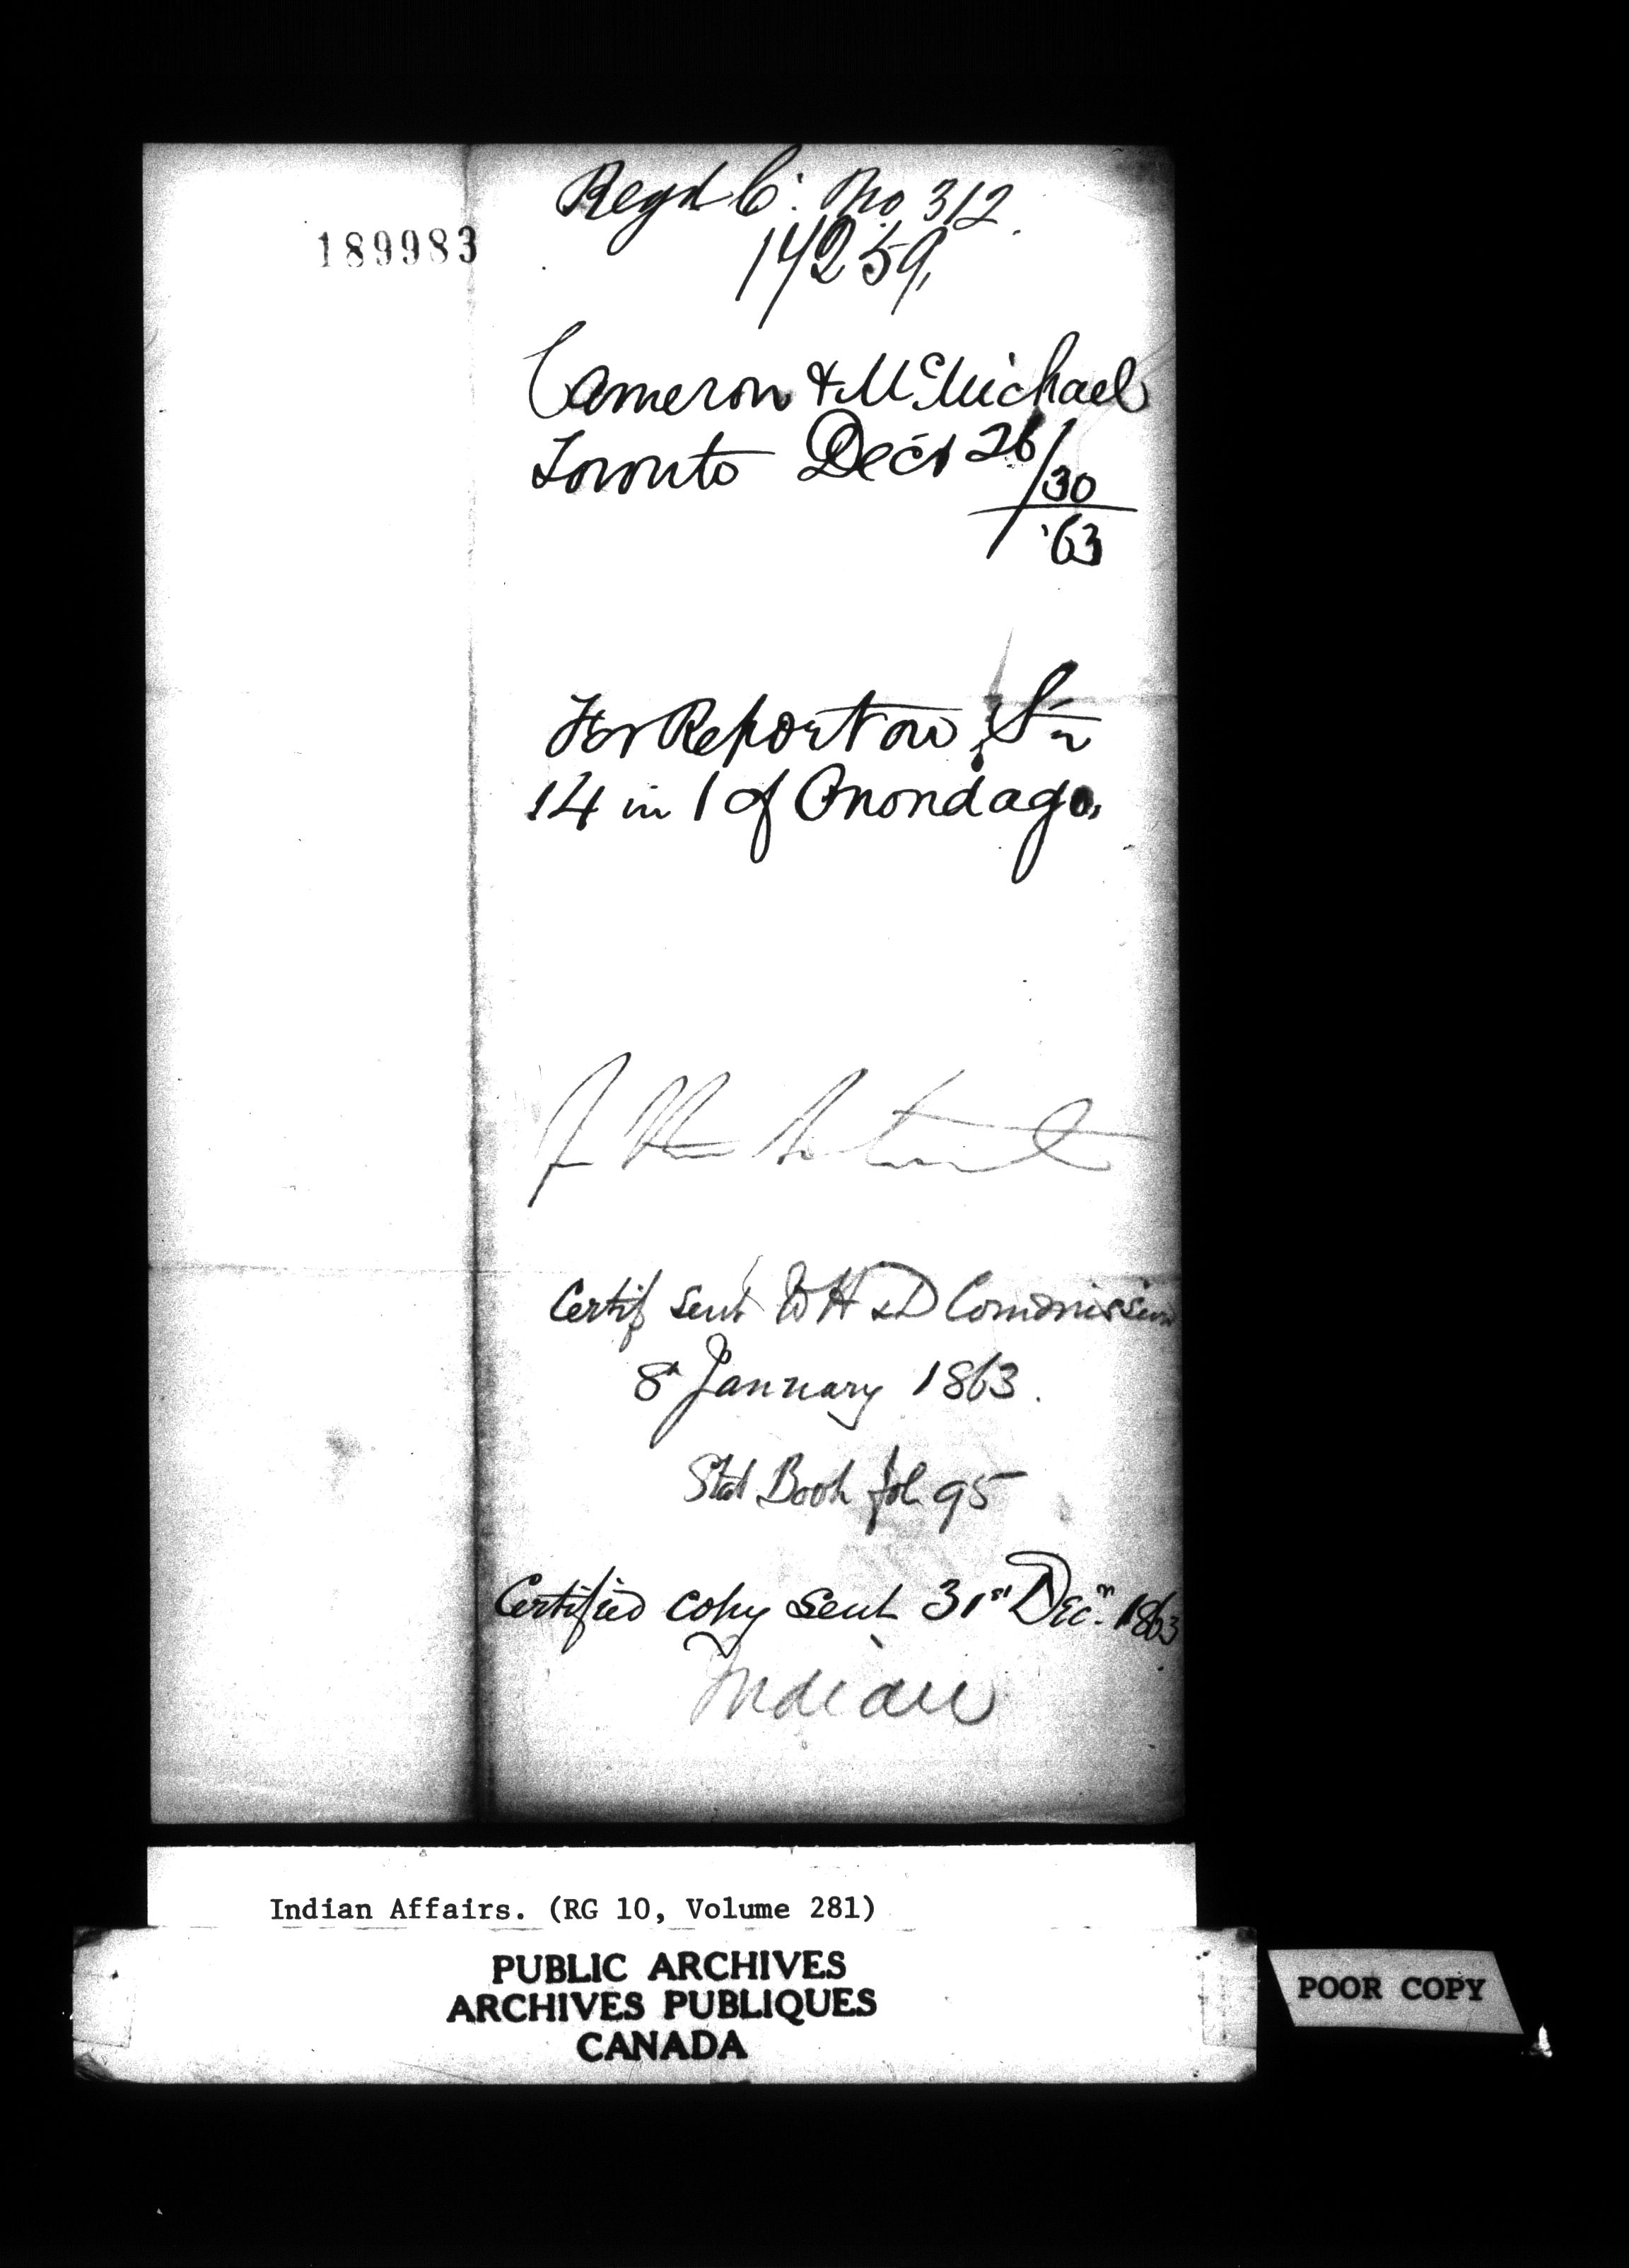 Regd C. No 312.
189983
14259
Cameron & McMichael
Toronto Decr 26/30
'63
For Report on S½
14 in 1 of Onondaga
Certif sent to H & D Commission
8th January 1863.
Stat Book fol 95
Certified copy sent 31st Decr. 1863
Indian
Indian Affairs. (RG 10, Volume 281)
PUBLIC ARCHIVES
ARCHIVES PUBLIQUES
CANADA
POOR COPY